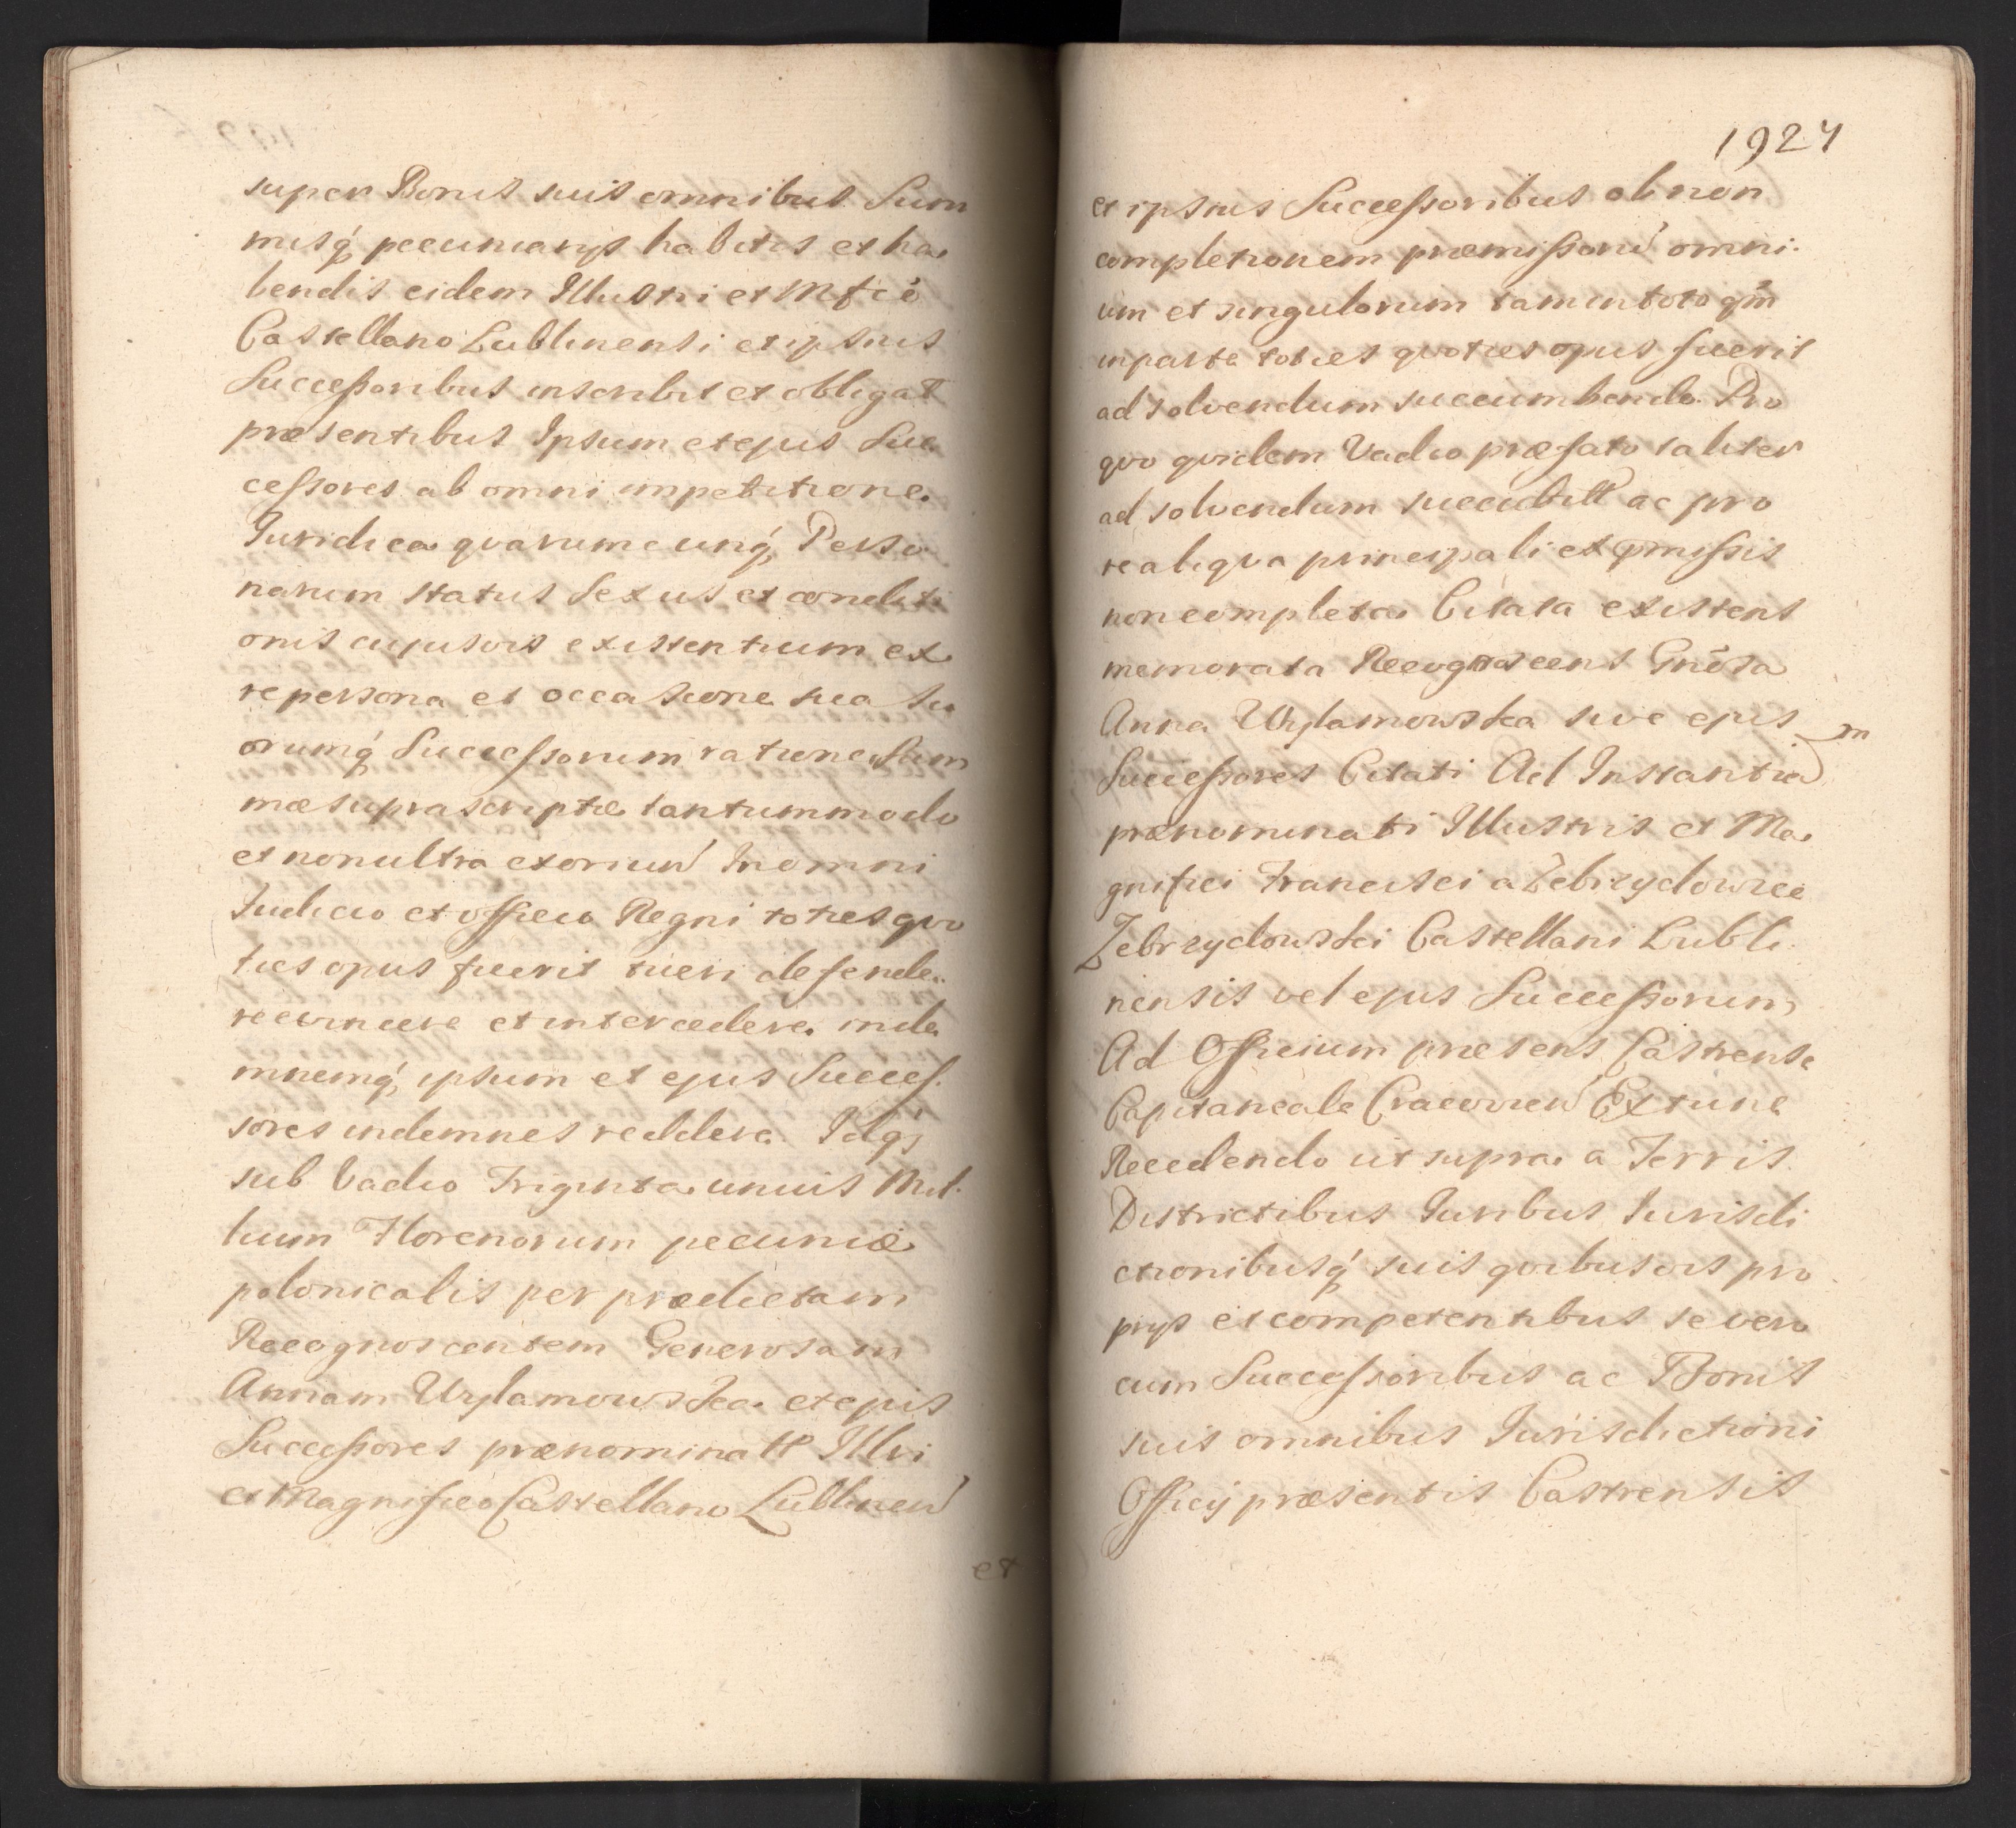 super Bonis suis omnibus Sum
misq́ pecuniarijs habitis et ha
bendis eidem Illustri et Mfcō
Castellano Lublinensi et ipsius
Successoribus inscribit et obligat
præsentibus Ipsum et ejus Suc
cessores ab omni impetitione
Juridica qvarumcunq́ Perso
narum status Sexus et conditi
onis cujusvis existentium ex
re persona et occasione sua su
orumq́ Successorum ratione Sum
mæ suprascriptæ tantummodo
et non ultra exorieñ In omni
Judicio et officio Regni toties qvo
ties opus fuerit tueri defende
re evincere et intercedere inde
mnemq́ ipsum et ejus Succes
sores indemnes reddere. Idq́
sub Vadio Triginta unius Mil
lium Florenorum pecuniæ
polonicalis per prædictam
Recognoscentem Generosam
Annam Wylamowska et ejus
Successores prænominatt Illri
et Magnifico Castellano Lublineñ
et
1927
et ipsius Successoribus ob non
completionem præmissorū omni
um et singulorum tam in toto qm̄
in parte toties qvoties opus fuerit
ad solvendum succumbendo. Pro
qvo qvidem Vadio præfato taliter
ad solvendum succubitt ac pro
re aliqva principali ex pmissis
non completa Citata existens
memorata Recognoscens Gnōsa
Anna Wylamowska sive ejus
Successores Citati Ad Instantia
m
prænominati Illustris et Ma
gnifici Francisci a Zebrzydowice
Zebrzydowski Castellani Lubli
nensis vel ejus Successorum
Ad Officium præsens Castrense
Capitaneale Cracovieñ Extunc
Recedendo ut supra a Terris
Districtibus Juribus Jurisdi
ctionibusq́ suis qvibusvis pro
prijs et competentibus se vero
cum Successoribus ac Bonis
suis omnibus Jurisdictioni
Officij præsentis Castrensis